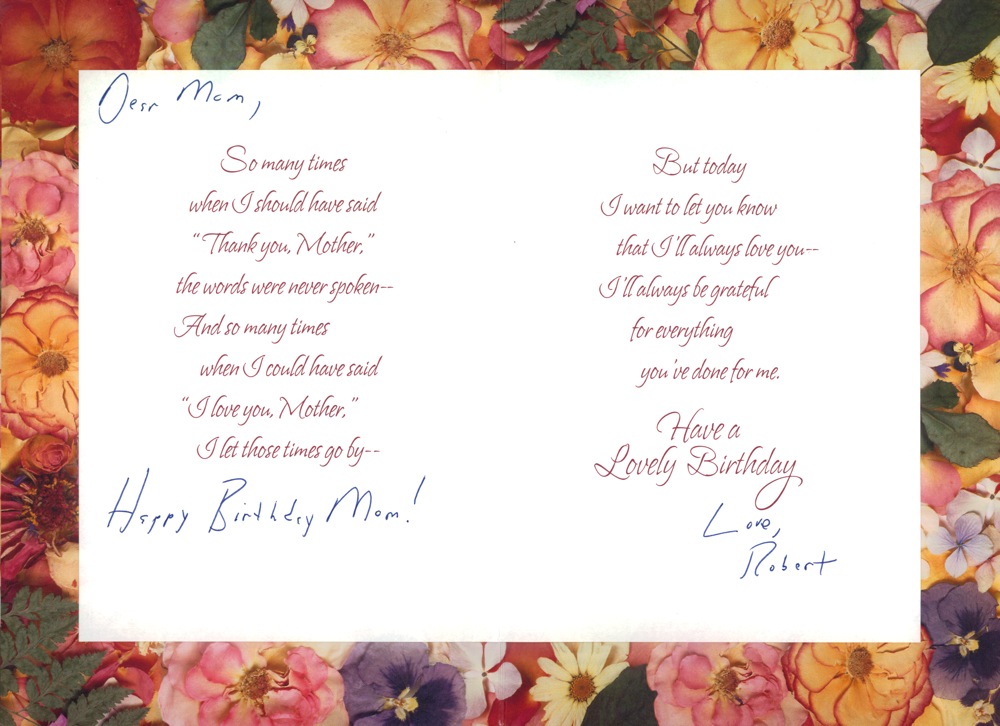 Dear Mom,
So many times
when I should have said
“Thank you, Mother,”
the words were never spoken--
And so many times
when I could have said
“I love you, Mother,”
I let those times go by--
Happy Birthday Mom!
But today
I want to let you know
that I'll always love you--
I'll always be grateful
for everything
you've done for me.
Have a
Lovely Birthday
Love,
Robert